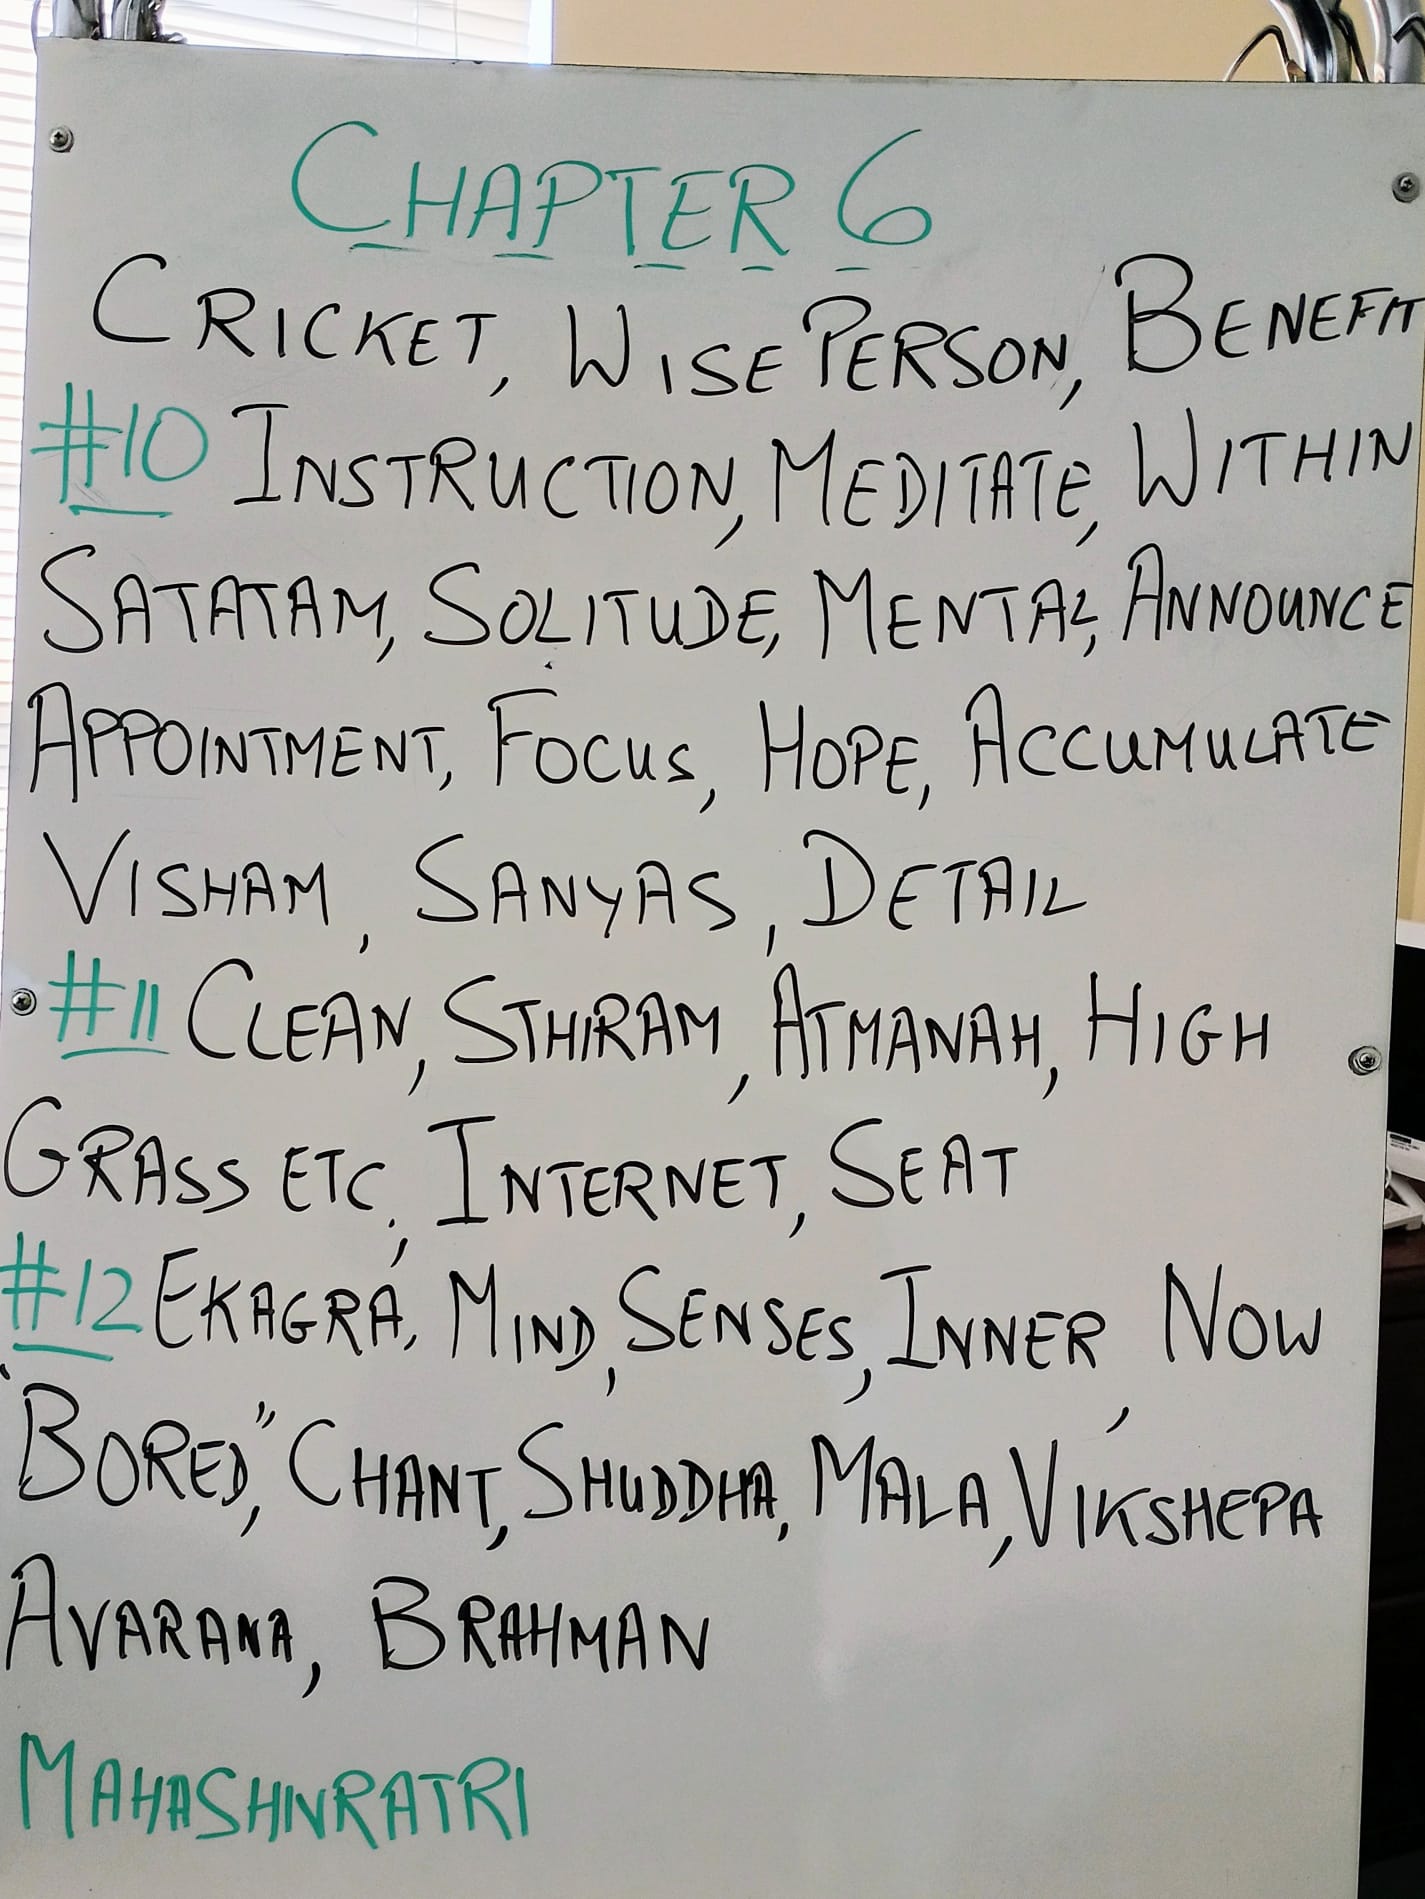 CHAPTER 6
CRICKET, WISE PERSON, BENEFIT
#10 INSTRUCTION, MEDITATE, WITHIN
SATATAM, SOLITUDE, MENTAL, ANNOUNCE
APPOINTMENT, FOCUS, HOPE, ACCUMULATE
VISHAM, SANYAS, DETAIL
#11 CLEAN, STHIRAM, ATMANAH, HIGH
GRASS ETC, INTERNET, SEAT
#12 EKAGRA, MIND, SENSES, INNER, NOW
"BORED," CHANT, SHUDDHA, MALA, VIKSHEPA
AVARANA, BRAHMAN
MAHASHIVRATRI